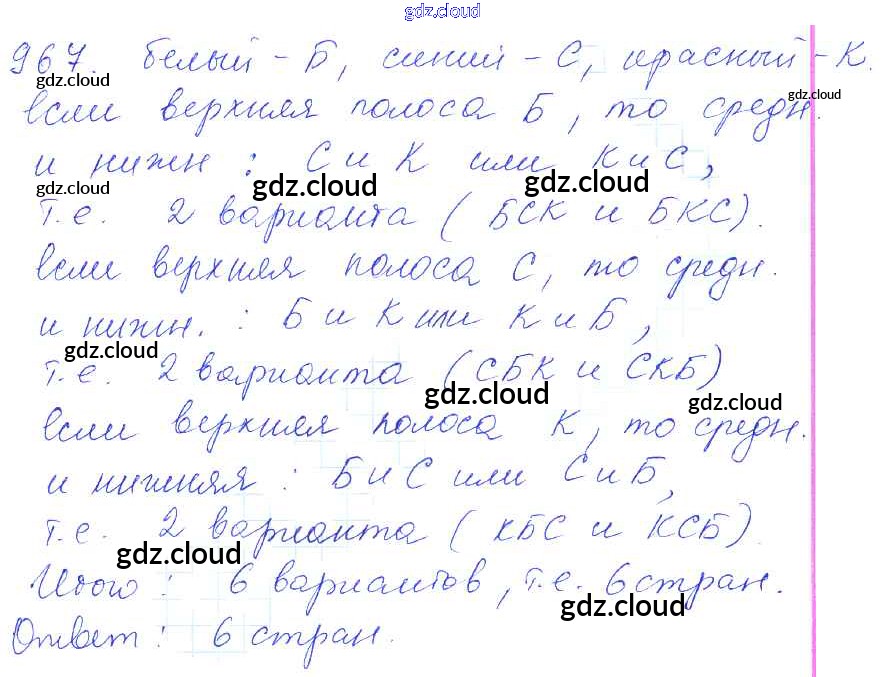 gdz.cloud
967. белый - Б, синий - С, красный - К.
gdz.cloud
gdz.cloud
если верхняя полоса Б, то средн.
и нижн : С и К или К и С,
gdz.cloud gdz.cloud gdz.cloud
т.е. 2 варианта ( БСК и БКС).
если верхняя полоса С, то средн.
и нижн. : Б и К или К и Б,
gdz.cloud
т.е. 2 варианта (СБК и СКБ)
gdz.cloud gdz.cloud
если верхняя полоса К, то средн.
и нижняя : Б и С или С и Б,
т.е. 2 варианта ( КБС и КСБ).
gdz.cloud
Итого : 6 вариантов, т.е. 6 стран.
gdz.cloud
Ответ : 6 стран.